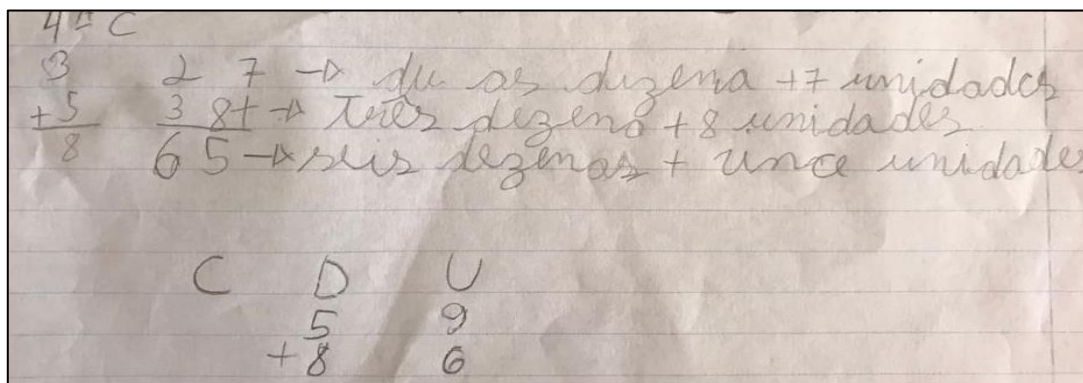 4ª C
3 2 7 → du as dizena +7 unidades
+5 3 8+ → três dezena + 8 unidades
8 6 5 → seis dezenas + unce unidades
C D U
5 9
+8 6